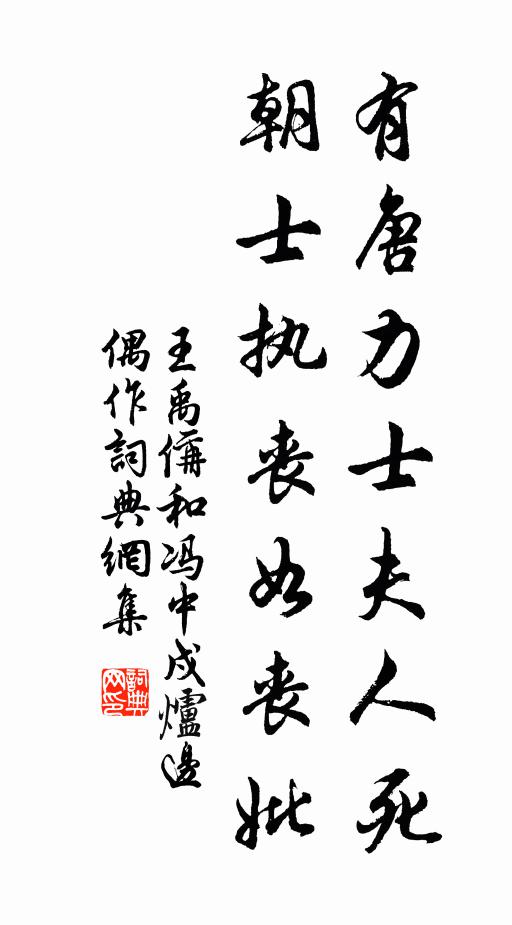 有唐力士夫人死
朝士执丧如丧妣
王禹偁和冯中戍爐邊
偶作詞典網集
詞典网印